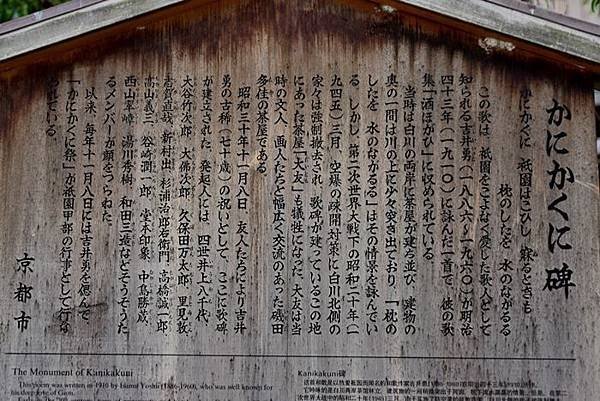 かにかくに 碑
かにかくに 祇園はこひし 寐るときも
枕のしたを 水のながるる
この歌は、祇園をこよなく愛した歌人として
知られる吉井勇(一八八六〜一九六〇)が明治
四十三年(一九一〇)に詠んだ一首で、彼の歌
集『酒ほがひ』に収められている。
当時は白川の両岸に茶屋が建ち並び、建物の
奥の一間は川の上に少々突き出ており、「枕の
したを 水のながるる」はその情景を詠んでい
る。しかし、第二次世界大戦下の昭和二十年(一
九四五)三月、空爆の疎開対策に白川北側の
家々は強制撤去され、歌碑が建っているこの地
にあった茶屋「大友」も犠牲になった。大友は当
時の文人、画人たちと幅広く交流のあった磯田
多佳の茶屋である。
昭和三十年十一月八日、友人たちにより吉井
勇の古稀(七十歳)の祝いとして、ここに歌碑
が建立された。発起人には、四世井上八千代、
大谷竹次郎、大佛次郎、久保田万太郎、里見弴、
志賀直哉、新村出、杉浦治郎右衛門、高橋誠一郎、
高山義三、谷崎潤一郎、堂本印象、中島勝蔵、
西山翠嶂、湯川秀樹、和田三造などそうそうた
るメンバーが顔をつらねた。
以来、毎年十一月八日には吉井勇を偲んで、
「かにかくに祭」が祇園甲部の行事として行な
われている。
京都市
The Monument of Kanikakuni
This poem was written in 1910 by Isamu Yoshii (1886-1960), who was well known for
his deep love of Gion.
Kanikakuni碑